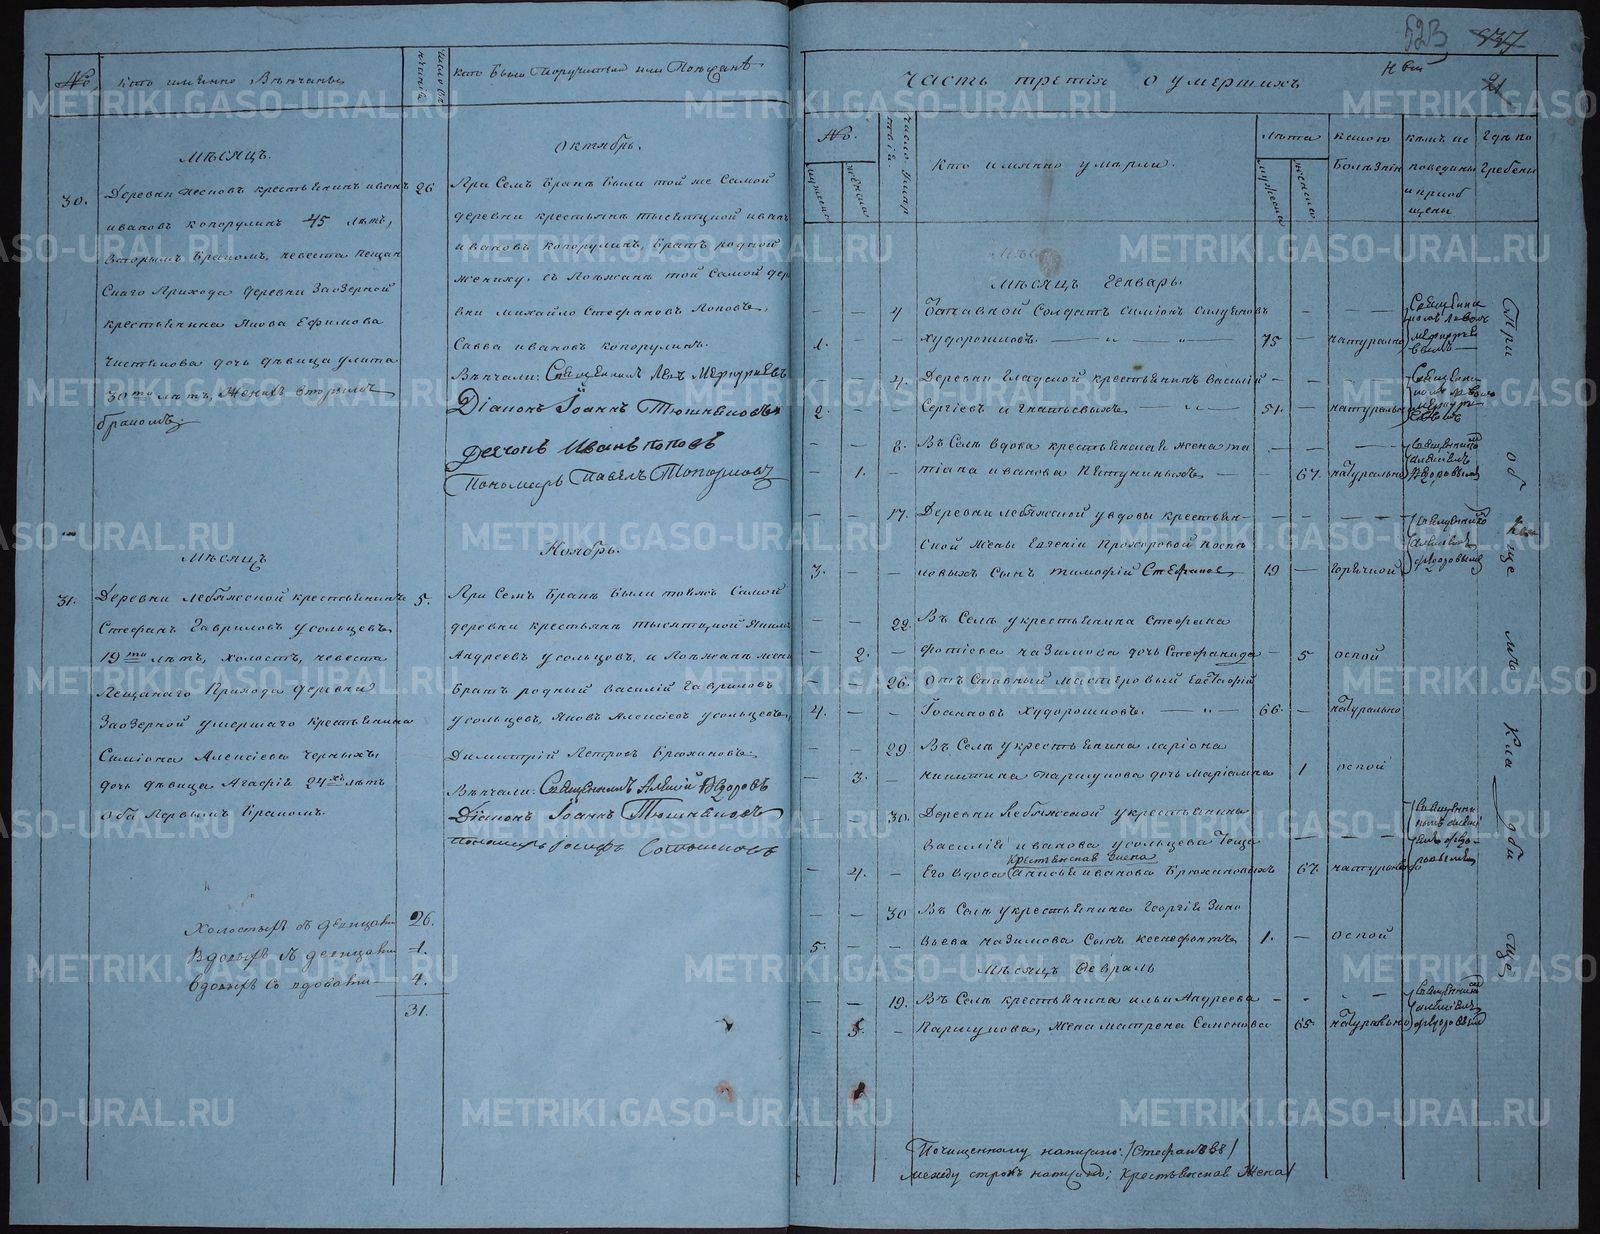 №
кто именно Вѣнчаны
Число вѣнчанія
кто были Поручители или Поѣзжанѣ
Мѣсяцъ.
Октябрь.
30.
Деревни
крестьянинъ иванъ
ивановъ копорулинъ 45 лѣтъ,
вторымъ бракомъ, невѣста пещан
скаго Прихода деревни Заозерной
крестьянина Якова Ефимова
Чистякова дочь дѣвица улита
30ти лѣтъ, Женихъ вторымъ
бракомъ.
26
При Семъ бракѣ были той же Самой
деревни крестьяна тысятцкой иванъ
ивановъ копорулинъ, братъ родной
жениху, съ Поѣжана той Самой дере
вни михайло Стефановъ Поповъ,
Савва ивановъ копорулинъ.
Вѣнчали: Священникъ Левъ Меркурьевъ
Діаконъ Іоаннъ Тюшняковъ
Дьячокъ Иванъ поповъ
Пономарь Павелъ Топорковъ
Мѣсяцъ
Ноябрь.
31.
Деревни Лебяжской крестьянинъ
Стефанъ Гавриловъ усольцевъ
19ти лѣтъ, холостъ, невеста
Пещанаго Прихода деревни
Заозерной умершаго крестьянина
Симіона Алексіева Черныхъ
дочь дѣвица Агафія 24хъ лѣтъ
оба Первымъ бракомъ.
5.
При Семъ бракѣ были тояжъ Самой
деревни крестьяна тысятцкой Якимъ
Андреевъ усольцовъ, и Поѣжана жени
братъ родный василій Гавриловъ
усольцевъ, Яковъ Алексіевъ усольцевъ,
Димитрій Петровъ Брюхановъ.
Вѣнчали: Священникъ Алексій Ѳедоровъ
Діаконъ Іоаннъ Тюшняковъ
пономарь іосифъ
Холостыя съ дѣвицами 26.
Вдовыя съ дѣвицами 1.
Вдовыя со вдовами 4.
31.
523
537
21
Часть третія о умершихъ
№.
мужеска
женска
Число умертвія.
кто имянно умерли.
лѣта
мужеска
женска
какою болѣзнію
кѣмъ исповеданы и приобщены
Гдѣ погребены
Мѣсяцъ Генварь.
4
Атставной Солдатъ симіонъ силуяновъ
1.
худорошковъ.
75
натурально
Священникомъ Левомъ Меркурьевымъ
4.
Деревни Гладской крестьянинъ василій
2.
Сергіевъ игнатьевыхъ
51.
натурально
Священникомъ Левомъ Меркурьевымъ
8.
Въ Селѣ вдова крестьянская жена та
1.
тіана иванова Пятунинахъ
67.
натурально
Священникомъ Алексіемъ Ѳедоровымъ
17.
Деревни лебяжской увдовы крестьян-
ской жены Евгеніи Прохоровой
3.
новыхъ сынъ тимофій Стефановъ
19
горячкой
Священникомъ Алексіемъ Ѳедоровымъ
22.
Въ Селѣ укрестьянина Стефана
2.
фотіева назимова дочь Стефанида
5
оспой
26.
отъ Ставный мастеровый Евстафій
4.
Іоанновъ Худорошковъ.
66.
натурально
29
Въ Селѣ укрестьянина ларіона
3.
никитина паршукова дочь Маріамна
1
оспой
30.
Деревни Лебяжской укрестьянина
Василія иванова усольцева теща
крестьянская жена
4.
Его вдова Анисья иванова Брюхановыхъ
67.
натурально
Священникомъ Алексіемъ Ѳедоровымъ
30
Въ Селѣ укрестьянина Георгія Зино
5.
вьева назимова Сынъ ксенефонтъ
1.
оспой
Мѣсяцъ Февраль
19.
Въ Селѣ крестьянина ильи Андреева
5.
Паршукова, жена матрена Семенова
65.
натурально
Священникомъ Алексіемъ Ѳедоровымъ
При общемъ Кладбище
Почищенному написано: /Стефановъ/
между строкъ написано: крестьянская Жена/
METRIKI.GASO-URAL.RU